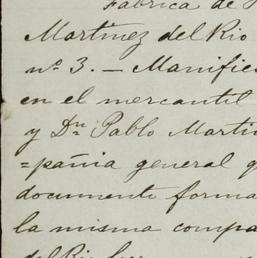 Fábrica de
Martinez del Rio
nº 3. — Manifie
en el mercantil
y Dn Pablo Martin
=pañia general q
documento forma
la misma compa
del Rio